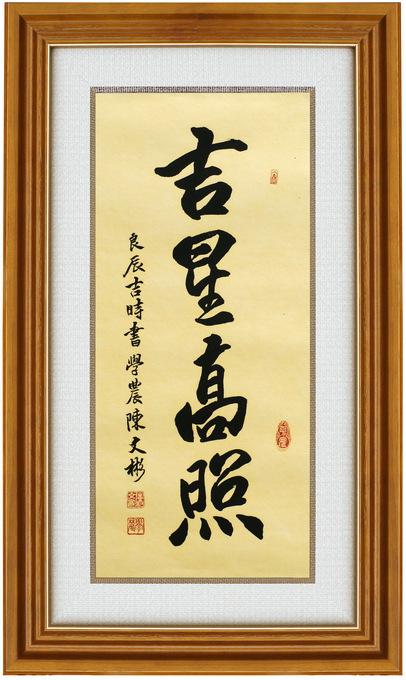 吉星高照
良辰吉時書學農陳文彬